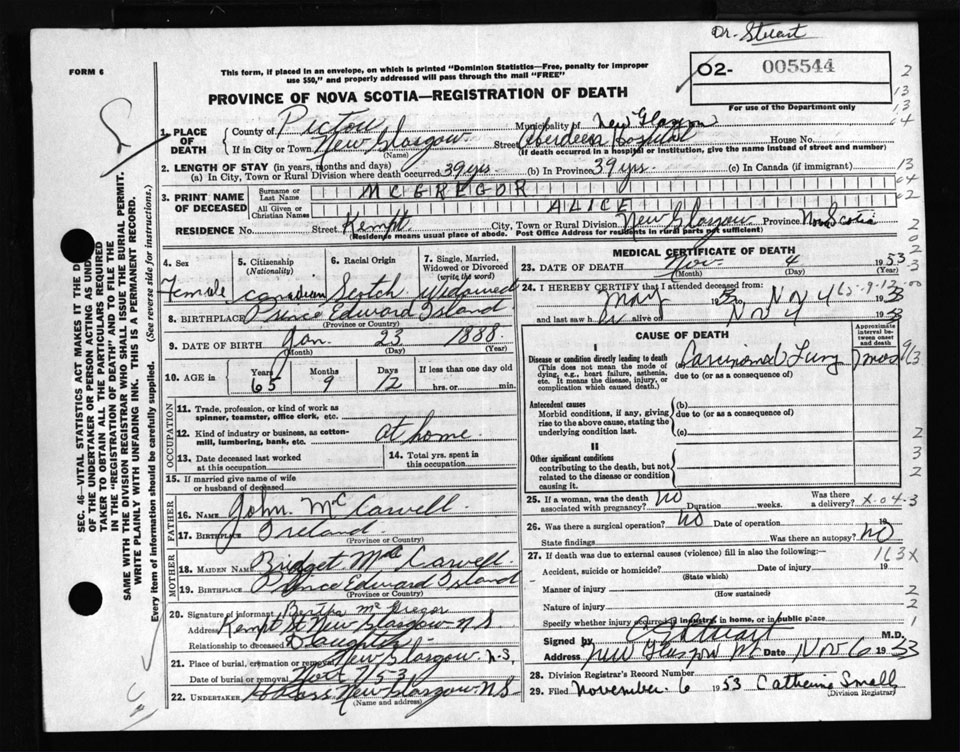 Dr. Stuart
FORM 6
This form, if placed in an envelope, on which is printed "Dominion Statistics—Free, penalty for improper
use $50," and properly addressed will pass through the mail "FREE"
02- 005544
For use of the Department only
PROVINCE OF NOVA SCOTIA—REGISTRATION OF DEATH
1. PLACE OF DEATH { County of Pictou Municipality of New Glasgow
If in City or Town New Glasgow Street Aberdeen Hospital House No.
(Name) (If death occurred in a hospital or institution, give the name instead of street and number)
2. LENGTH OF STAY (in years, months and days)
(a) In City, Town or Rural Division where death occurred 39 yrs. (b) In Province 39 yrs. (c) In Canada (if immigrant)
3. PRINT NAME OF DECEASED { Surname or Last Name MCGREGOR
All Given or Christian Names ALICE
RESIDENCE No. Street Kempt City, Town or Rural Division New Glasgow Province Nova Scotia
(Residence means usual place of abode. Post Office Address for residents in rural parts not sufficient)
4. Sex Female
5. Citizenship (Nationality) Canadian
6. Racial Origin Scotch
7. Single, Married, Widowed or Divorced (write the word) Widowed
8. BIRTHPLACE Prince Edward Island
(Province or Country)
9. DATE OF BIRTH Jan. 23 1888
(Month) (Day) (Year)
10. AGE in { Years 65 Months 9 Days 12 If less than one day old hrs. or min.
OCCUPATION
11. Trade, profession, or kind of work as spinner, teamster, office clerk, etc.
12. Kind of industry or business, as cotton-mill, lumbering, bank, etc. at home
13. Date deceased last worked at this occupation
14. Total yrs. spent in this occupation
15. If married give name of wife or husband of deceased
FATHER
16. Name John Mc
17. Birthplace Ireland
(Province or Country)
MOTHER
18. Maiden Name Bridget
19. Birthplace Prince Edward Island
(Province or Country)
20. Signature of informant Bertha McGregor
Address Kempt St New Glasgow N S
Relationship to deceased Daughter
21. Place of burial, cremation or removal New Glasgow
Date of burial or removal Nov 7 53
22. UNDERTAKER New Glasgow N S
(Name and address)
MEDICAL CERTIFICATE OF DEATH
23. DATE OF DEATH Nov 4 1953
(Month) (Day)
24. I HEREBY CERTIFY that I attended deceased from:
May Nov 4 1953
and last saw h er alive on Nov 4 1953
CAUSE OF DEATH
Approximate interval between onset and death
I
Disease or condition directly leading to death
(This does not mean the mode of dying, e.g., heart failure, asthenia, etc. It means the disease, injury, or complication which caused death.)
(a) Lung mos
due to (or as a consequence of)
Antecedent causes
Morbid conditions, if any, giving rise to the above cause, stating the underlying condition last.
(b)
due to (or as a consequence of)
(c)
II
Other significant conditions
contributing to the death, but not related to the disease or condition causing it.
25. If a woman, was the death associated with pregnancy? No Duration weeks. Was there a delivery?
26. Was there a surgical operation? No Date of operation 19
State findings Was there an autopsy? No
27. If death was due to external causes (violence) fill in also the following:—
Accident, suicide or homicide? Date of injury 19
(State which)
Manner of injury
(How sustained)
Nature of injury
Specify whether injury occurred in industry, in home, or in public place
Signed by Stuart M.D.
Address New Glasgow Date Nov 6 1953
28. Division Registrar's Record Number
29. Filed November 6 1953 Catherine Small
(Division Registrar)
SEC. 46—VITAL STATISTICS ACT MAKES IT THE
OF THE UNDERTAKER OR PERSON ACTING AS
TAKER TO OBTAIN ALL THE PARTICULARS REQUIRED
IN THE "REGISTRATION OF DEATH" AND TO FILE THE
SAME WITH THE DIVISION REGISTRAR WHO SHALL ISSUE THE BURIAL PERMIT.
WRITE PLAINLY WITH UNFADING INK. THIS IS A PERMANENT RECORD.
Every item of information should be carefully supplied. (See reverse side for instructions.)